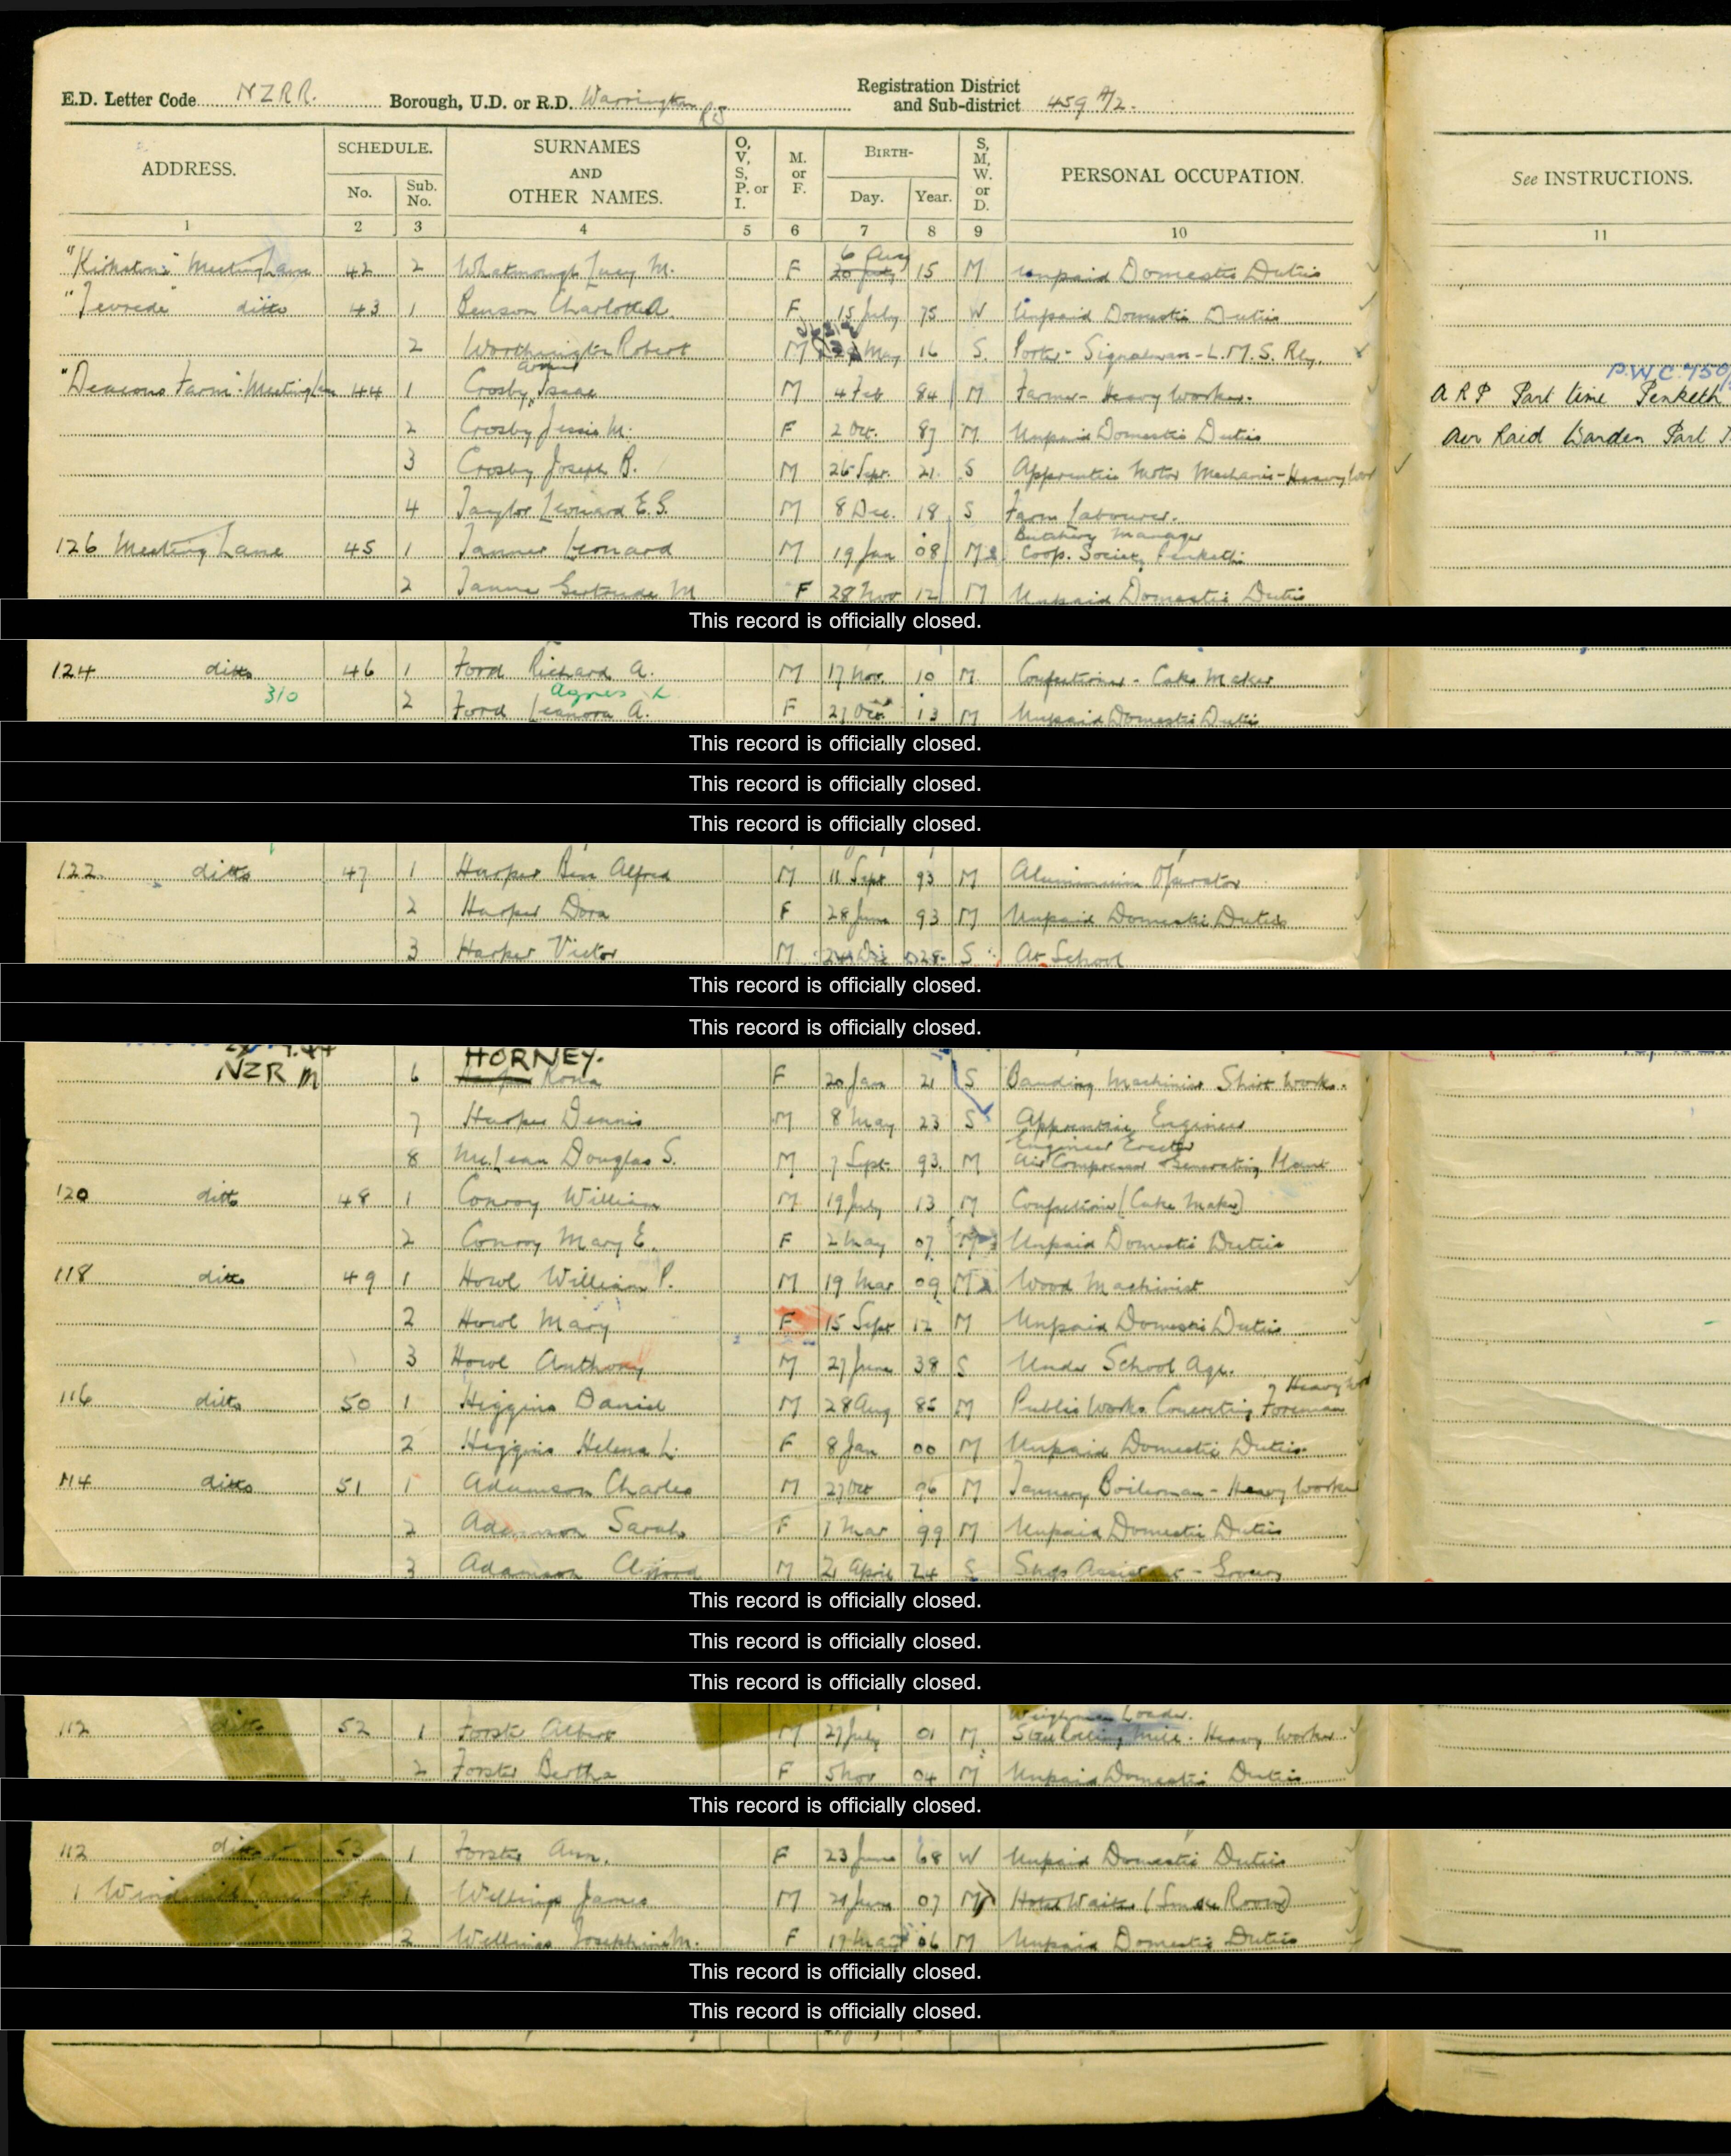 E.D. Letter Code NZRR. Borough, U.D. or R.D. Warrington R.D Registration District and Sub-district 459 A/2.
ADDRESS. SCHEDULE. No. Sub. No. SURNAMES AND OTHER NAMES. O, V, S, P. or I. M. or F. BIRTH- Day. Year. S, M, W. or D. PERSONAL OCCUPATION. See INSTRUCTIONS.
1 2 3 4 5 6 7 8 9 10 11
Meeting Lane 42 2 Whatmough Lucy M. F 6 Aug 15 M Unpaid Domestic Duties
ditto 43 1 Benson Charlotte A. F 15 July 75 W Unpaid Domestic Duties
2 Worthington Robert M May 16 S. Porter - Signalman - L.M.S. Rly.
"Deacons Farm" Meeting Lane 44 1 Crosby Isaac M 4 Feb 84 M Farmer - Heavy Worker. A R P Part time Penketh
2 Crosby Jessie M. F 2 Oct. 87 M Unpaid Domestic Duties Air Raid Warden Part
3 Crosby Joseph B. M 26 Sept. 21 S Apprentice Motor Mechanic - Heavy Work
4 Taylor Leonard E.S. M 8 Dec. 18 S Farm Labourer.
126 Meeting Lane 45 1 Tanner Leonard M 19 Jan 08 M Butchery Manager Coop. Society Penketh
2 Tanner Gertrude M F 28 Nov 12 M Unpaid Domestic Duties
This record is officially closed.
124 ditto 46 1 Ford Richard A. M 17 Nov. 10 M Confectioner - Cake Maker
310 Agnes L
2 Ford Leanora A. F 27 Oct. 13 M Unpaid Domestic Duties
This record is officially closed.
This record is officially closed.
This record is officially closed.
122 ditto 47 1 Harper Ben Alfred M 11 Sept 93 M Aluminium Operator
2 Harper Dora F 28 June 93 M Unpaid Domestic Duties
3 Harper Victor M 24 Dec 28 S At School
This record is officially closed.
This record is officially closed.
NZR M HORNEY.
6 Rona F 20 Jan 21 S Banding Machinist Shirt Works.
7 Harper Dennis M 8 May 23 S Apprentice Engineer
8 McLean Douglas S. M 7 Sept 93 M Engineer Erector Air Compressor Generating Plant
120 ditto 48 1 Conroy William M 19 July 13 M Confectioner (Cake Maker)
2 Conroy Mary E. F 2 May 07 M Unpaid Domestic Duties
118 ditto 49 1 Howl William P. M 19 Mar 09 M Wood Machinist
2 Howl Mary F 15 Sept 12 M Unpaid Domestic Duties
3 Howl Anthony M 27 June 38 S Under School Age.
116 ditto 50 1 Higgins Daniel M 28 Aug 85 M Public Works Concreting Foreman Heavy Work
2 Higgins Helena L. F 8 Jan 00 M Unpaid Domestic Duties
114 ditto 51 1 Adamson Charles M 27 Oct 96 M Tannery Boilerman - Heavy Worker
2 Adamson Sarah F 1 Mar 99 M Unpaid Domestic Duties
3 Adamson Clifford M 21 April 24 S Shop Assistant - Grocery
This record is officially closed.
This record is officially closed.
This record is officially closed.
112 ditto 52 1 Forster Albert M 27 July 01 M Weighman Loader. Steel Rolling Mill - Heavy Worker.
2 Forster Bertha F 5 Nov 04 M Unpaid Domestic Duties
This record is officially closed.
112 ditto 53 1 Forster Ann. F 23 June 68 W Unpaid Domestic Duties
1 54 1 Willings James M 21 June 07 M Hotel Waiter (Smoke Room)
2 Willings Josephine M. F 17 Mar 06 M Unpaid Domestic Duties
This record is officially closed.
This record is officially closed.